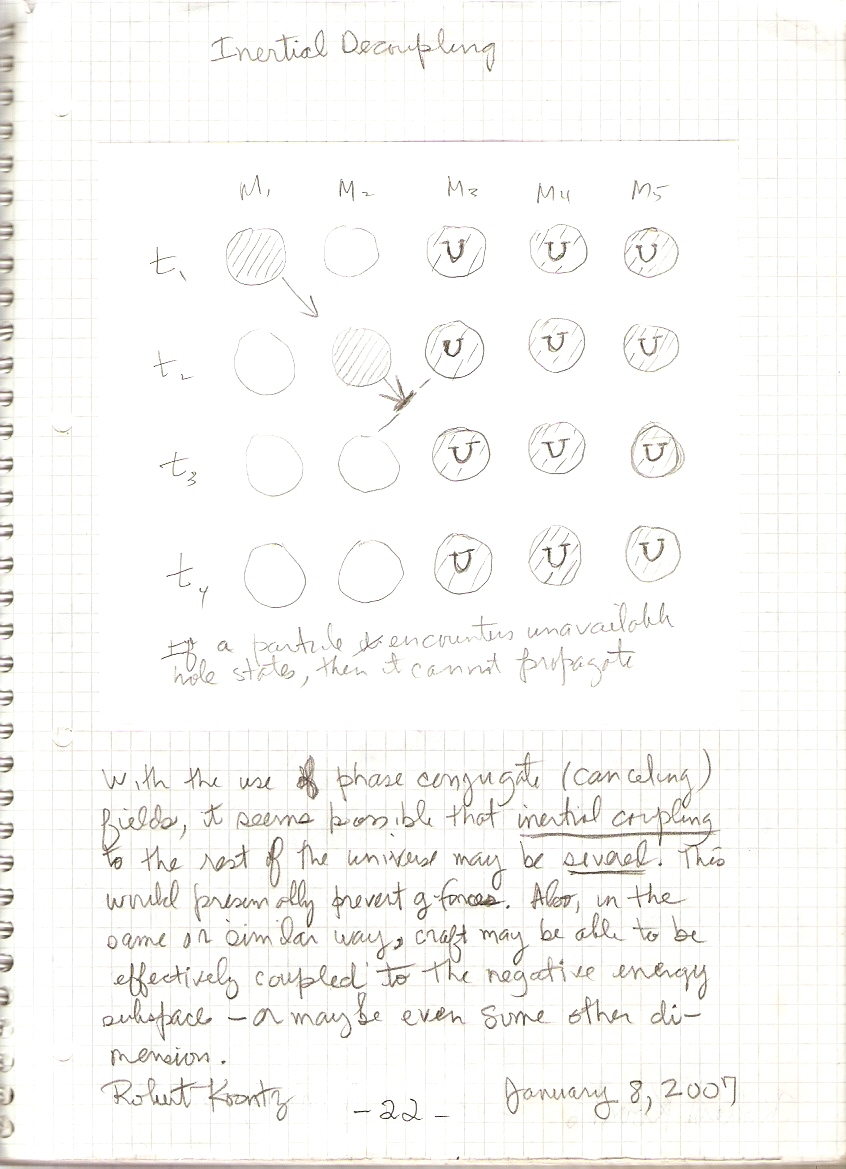 Inertial Decoupling
M1 M2 M3 M4 M5
t1 U U U
t2 U U U
t3 U U U
t4 U U U
If a particle encounters unavailable
hole states, then it cannot propagate
With the use of phase conjugate (canceling)
fields, it seems possible that inertial coupling
to the rest of the universe may be severed. This
would presumally prevent g-forces. Also, in the
same or similar way, craft may be able to be
effectively coupled to the negative energy
subspace – or maybe even some other di-
mension.
Robert Koontz
- 22 -
January 8, 2007